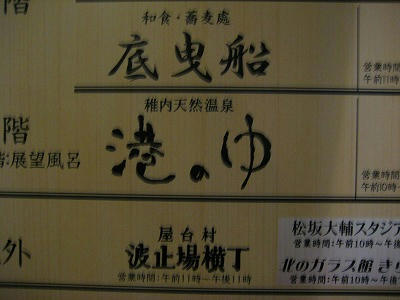 階
和食・蕎麦處
底曳船
営業時間
午前11時
階
階:展望風呂
稚内天然温泉
港のゆ
営業時間
午前10時
外
屋台村
波止場横丁
営業時間:午前11時〜午後11時
松坂大輔スタジア
営業時間:午前10時〜午後
北のガラス館 きら
営業時間:午前10時〜午後